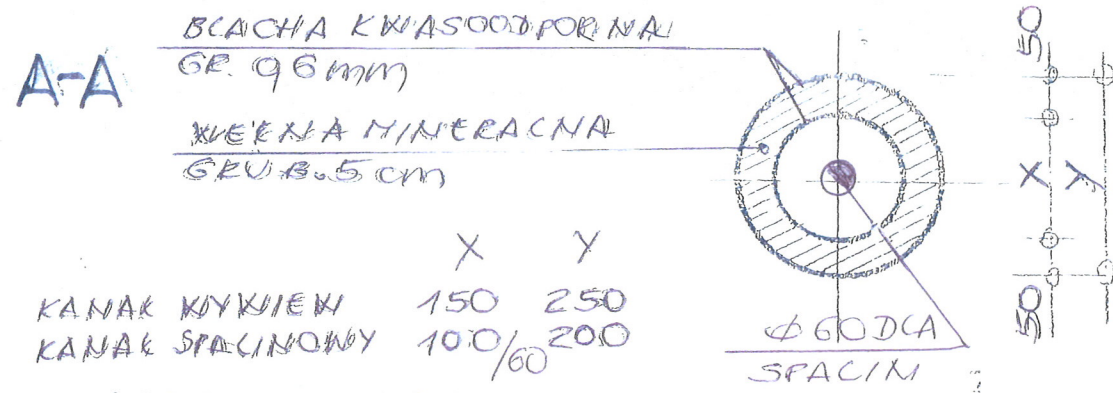 A-A
BLACHA KWASOODPORNA
GR. 0,6 mm
WEŁNA MINERALNA
GRUB. 5 cm
X Y
KANAŁ WYWIEW 150 250
KANAŁ SPALINOWY 100/60 200
Ø 60 DLA
SPALIN
50
X Y
50